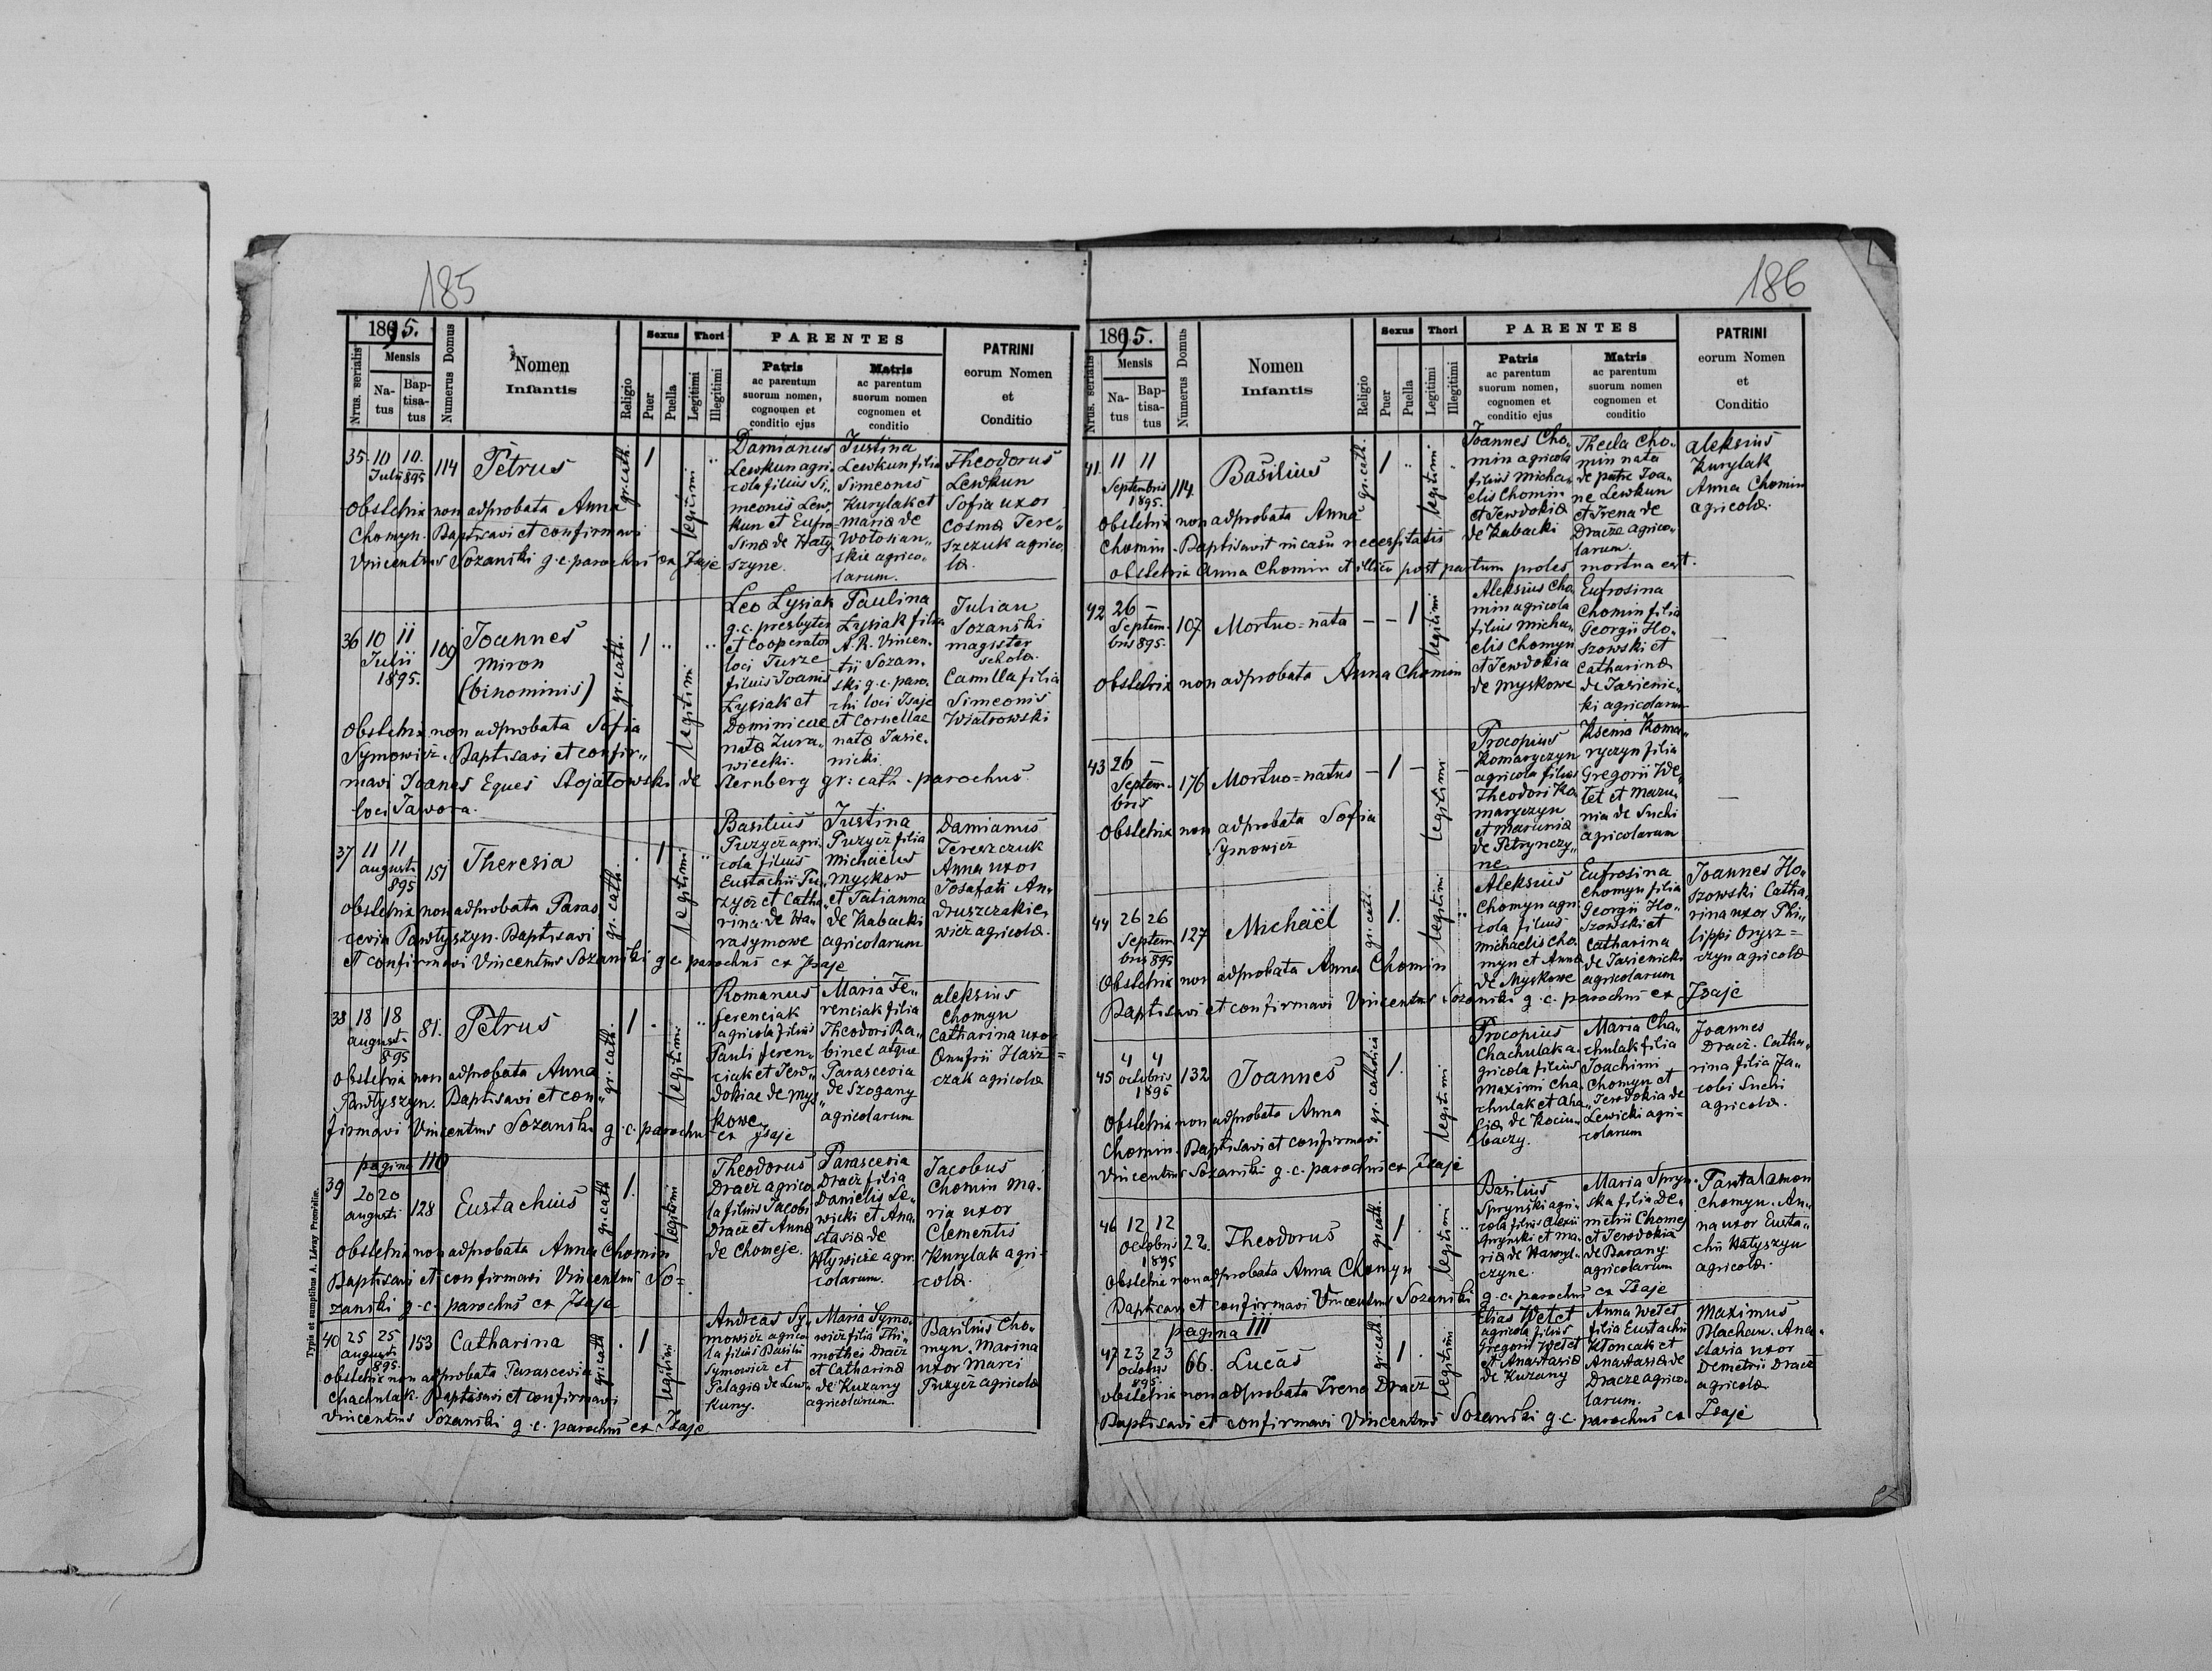 185
1895.
Nrus. serialis
Mensis
Natus
Baptisatus
Numerus Domus
Nomen
Infantis
Religio
Sexus
Puer
Puella
Thori
Legitimi
Illegitimi
PARENTES
Patris
ac parentum
suorum nomen,
cognomen et
conditio ejus
Matris
ac parentum
suorum nomen
cognomen et
conditio
PATRINI
eorum Nomen
et
Conditio
35 10 10. 114 Petrus gr. cath. 1 legitimi
Julii 895
Damianus
Lewkun agri-
cola filius Si-
meonis Lew-
kun et Eufro-
sina de Haty-
szyne.
Justina
Lewkun filia
Simeonis
Kurylak et
Maria de
Wolosian-
skie agrico-
larum.
Theodorus
Lewkun
Sofia uxor
Cosma Tere-
szczuk agrico
la.
Obstetrix non adprobata Anna
Chomyn. Baptisavi et confirmavi
Vincentius Sozański g.c. parochus ex Isaje
36 10 11 109 Joannes gr. cath. 1 legitimi
Julii
1895.
Miron
(binominis)
Leo Lysiak
g.c. presbyter
et Cooperator
loci Turze
filius Joanis
Łysiak et
Dominicae
nata Zura-
wiecki.
Paulina
Łysiak filia
A.R. Vincen-
tii Sozan-
ski g.c. paro-
chi loci Isaje
et Cornellae
nata Jasie-
nicki.
Julian
Sozański
magister
schola.
Camilla filia
Simeonis
Wiatrowski
Obstetrix non adprobata Sofia
Symowicz. Baptisavi et confir-
mavi Joanes Eques Stojałowski de Sternberg gr: cath. parochus
loci Jawora.
37 11 11 151 Theresia gr. cath. 1 legitimi
augusti
895
Basilius
Puzycz agri-
cola filius
Eustachii Pu-
zycz et Catha-
rina de Ha-
rasymowe
Justina
Puzycz filia
Michaelis
Myskow
et Tatianna
de Kabacki
agricolarum
Damianus
Tereszczuk
Anna uxor
Josafati An-
druszczakie-
wicz agricola.
Obstetrix non adprobata Paras
cevia Pawłyszyn. Baptisavi
et confirmavi Vincentius Sozański g c parochus ex Isaje
38 18 18 81. Petrus gr. cath. 1 legitimi
august.
895
Romanus
Ferenciak
agricola filius
Pauli Feren-
ciak et Jew-
dokiae de Mys-
kowe
Maria Fe-
renciak filia
Theodori Ra-
binec atque
Parascevia
de Szogany
agricolarum
aleksius
Chomyn
Catharina uxor
Onufrii Hasz=
czak agricola
Obstetrix non adprobata Anna
Pawłyszyn. Baptisavi et con-
firmavi Vincentius Sozański g.c. parochus ex Isaje
pagina 110
39 20 20 128 Eustachius gr. cath 1. legitimi
augusti
Theodorus
Dracz agrico
la filius Jacobi
Dracz et Anna
de Chomeje.
Parascevia
Dracz filia
Danielis Le-
wicki et Ana-
stasia de
Hływicze agri-
colarum.
Jacobus
Chomin Ma-
ria uxor
Clementis
Kurylak agri-
cola.
Obstetrix non adprobata Anna Chomin
Baptisavi et confirmavi Vincentius So=
zanski g.c. parochus ex Isaje
40 25 25 153 Catharina gr. cath 1 legitimi
augusti
895.
Andreas Sy-
mowicz agrico
la filius Basilii
Symowicz et
Pelagia de Lew-
kuny.
Maria Symo-
wicz filia Thi-
mothei Dracz
et Catharina
de Kuzany
agricolarum.
Basilius Cho-
myn. Marina
uxor Marci
Puzycz agricola
Obstetrix non adprobata Parascevia
Chachulak. Baptisavi et confirmavi
Vincentius Sozański g.c. parochus ex Isaje
Typis et sumptibus A. Löray Premisliae.
186
1895.
Nrus. serialis
Mensis
Natus
Baptisatus
Numerus Domus
Nomen
Infantis
Religio
Sexus
Puer
Puella
Thori
Legitimi
Illegitimi
PARENTES
Patris
ac parentum
suorum nomen,
cognomen et
conditio ejus
Matris
ac parentum
suorum nomen
cognomen et
conditio
PATRINI
eorum Nomen
et
Conditio
41. 11 11 114. Basilius gr. cath. 1 legitimi
Septembris
1895.
Joannes Cho-
min agricola
filius Micha-
elis Chomin
et Jewdokia
de Kabacki
Thecla Cho-
min nata
de patre Joa-
ne Lewkun
et Irena de
Dracze agrico-
larum.
aleksius
Kurylak
Anna Chomin
agricola.
Obstetrix non adprobata Anna
Chomin. Baptisavit in casu necessitatis
obstetrix Anna Chomin et illico post partum proles mortua est.
42 26 — 107 Mortuo=nata — — 1 legitimi
Septem-
bris 895.
Aleksius Cho
min agricola
filius Micha-
elis Chomyn
et Jewdokia
de Myskowe
Eufrosina
Chomin filia
Georgii Ho-
szowski et
Catharina
de Jasienic-
ki agricolarum
—
Obstetrix non adprobata Anna Chomin
43 26 — 176 Mortuo=natus — 1 — legitimi —
Septem-
bris
Procopius
Komaryczyn
agricola filius
Theodori Ko
maryczyn
et Marunia
de Petrynczy-
ne
Ksenia Koma-
ryczyn filia
Gregorii We-
tet et Maru-
nia de Suchi
agricolarum
—
Obstetrix non adprobata Sofia
Symowicz
44 26 26 127 Michaël gr. cath. 1. legitimi
Septem
bris 895
Aleksius
Chomyn agri-
cola filius
Michaelis Cho-
myn et Anna
de Myskowe
Eufrosina
Chomyn filia
Georgii Ho-
szowski et
Catharina
de Jasienicki
agricolarum
Joannes Ho-
szowski Catha-
rina uxor Phi-
lippi Orysz=
czyn agricola
Obstetrix non adprobata Anna Chomin
Baptisavi et confirmavi Vincentius Sozanski g.c. parochus ex Isaje
45 4 4 132 Joannes gr. catholica 1. legitimi
octobris
1895
Procopius
Chachulak a-
gricola filius
Maximi Cha-
chulak et Aha-
fia de Kociu-
baczy.
Maria Cha-
chulak filia
Joachimi
Chomyn et
Jewdokia de
Lewicki agri-
colarum
Joannes
Dracz. Catha-
rina filia Ja-
cobi Suchi
agricola.
Obstetrix non adprobata Anna
Chomin. Baptisavi et confirmavi
Vincentius Sozanski g.c. parochus ex Isaje
46 12 12 22. Theodorus gr. cath. 1 legitimi
Octobris
1895
Basilius
Sprynski agri-
cola filius Alexii
Sprynski et Ma-
ria de Hawryl-
czyne.
Maria Spryn-
ska filia De-
metrii Chomej
et Jewdokia
de Barany
agricolarum
Pantalamon
Chomyn. An-
na uxor Eusta-
chii Hatyszyn
agricola.
Obstetrix non adprobata Anna Chomyn
Baptisavi et confirmavi Vincentius Sozanski g.c. parochus ex Isaje
pagina 111
47 23 23 66. Lucas gr. cath. 1 legitimi
octobris
895.
Elias Wetet
agricola filius
Gregorii Wetet
et Anastasia
de Kuzany
Anna Wetet
filia Eustachii
Kłonczak et
Anastasia de
Dracze agrico-
larum.
Maximus
Blachan. Ana-
stasia uxor
Demetrii Dracz
agricola
Obstetrix non adprobata Irena Dracz
Baptisavi et confirmavi Vincentius Sozanski g.c. parochus ex Isaje